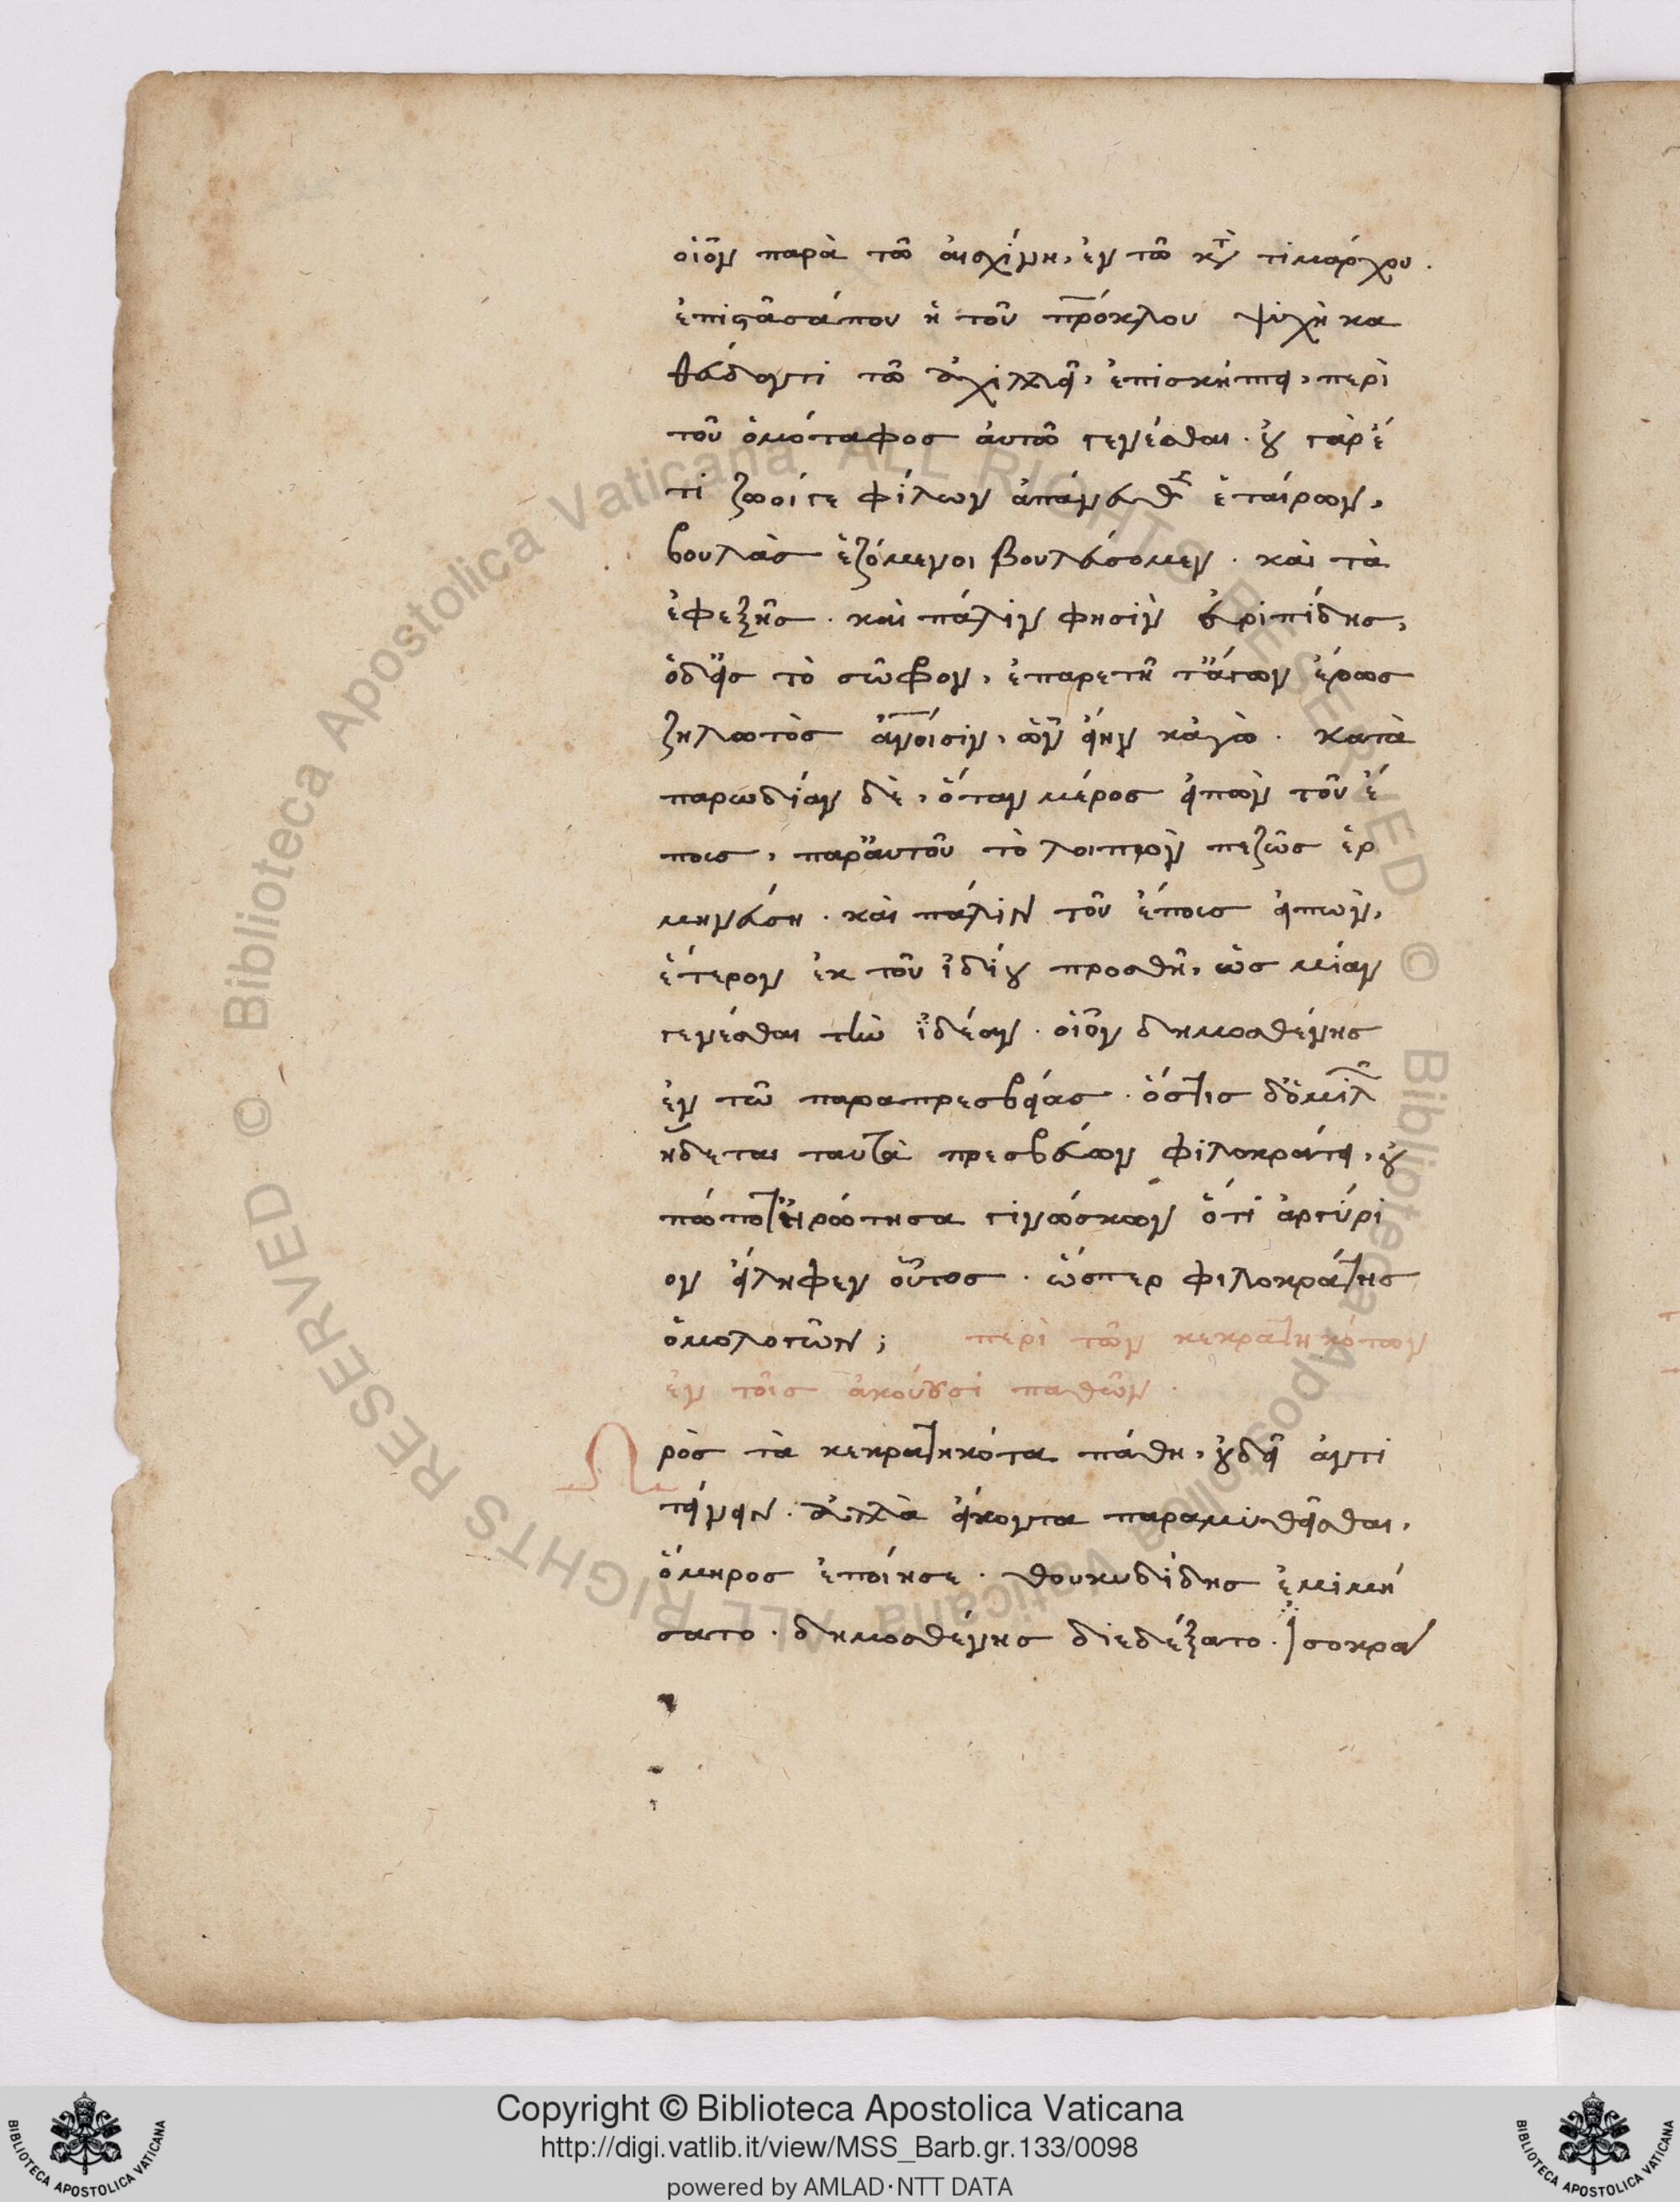 οἷον παρὰ τῶ αἰσχίνη, ἐν τῶ κτ τιμάρχου.
ἐπιστᾶσά που ἡ τοῦ πρόκλου ψυχὴ κα
θεύδοντι τῶ ἀχιλλεῖ, ἐπισκήπτει, περὶ
τοῦ ὁμόταφος αὐτῶ γενέσθαι. οὐ γὰρ ἔ
τι ζωοί γε φίλων ἀπάνευθεν ἑταίρων,
βουλὰς ἑζόμενοι βουλεύσομεν. καὶ τὰ
ἐφεξῆς. καὶ πάλιν φησὶν εὐριπίδης,
ὁ δ' εἰς τὸ σῶφρον, ἐπ' ἀρετῆ τ' ἄγων ἔρως
ζηλωτὸς ἀνοισιν, ὧν εἴην κἀγώ. κατὰ
παρωδίαν δὲ, ὅταν μέρος εἰπὼν τοῦ ἔ
πους, παρ' αὐτοῦ τὸ λοιπὸν πεζῶς ἑρ
μηνεύση. καὶ πάλιν τοῦ ἔπους εἰπὼν,
ἕτερον ἐκ τοῦ ἰδίου προσθῆ, ὡς μίαν
γενέσθαι τὴν ἰδέαν. οἷον δημοσθένης
ἐν τῶ παραπρεσβείας. ὅστις δ' ὁμιλ
ἥδεται ταυτὰ πρεσβεύων φιλοκράτει, οὐ
πώποτ' ἠρώτησα γινώσκων ὅτι ἀργύρι
ον εἴληφεν οὗτος. ὥσπερ φιλοκράτης
ὁμολογῶν; περὶ τῶν κεκρατηκότων
ἐν τοῖς ἀκούουσι παθῶν.
Πρὸς τὰ κεκρατηκότα πάθη, οὐ δεῖ ἀντι
τείνειν. ἀλλὰ εἴκοντα παραμυθεῖσθαι,
ὅμηρος ἐποίησε. θουκυδίδης ἐμιμή
σατο. δημοσθένης διεδέξατο. ἰσοκρα
Copyright © Biblioteca Apostolica Vaticana
http://digi.vatlib.it/view/MSS_Barb.gr.133/0098
powered by AMLAD·NTT DATA
BIBLIOTECA APOSTOLICA VATICANA
BIBLIOTECA APOSTOLICA VATICANA
Biblioteca Apostolica Vaticana ALL RIGHTS RESERVED ©
Biblioteca Apostolica Vaticana ALL RIGHTS RESERVED ©